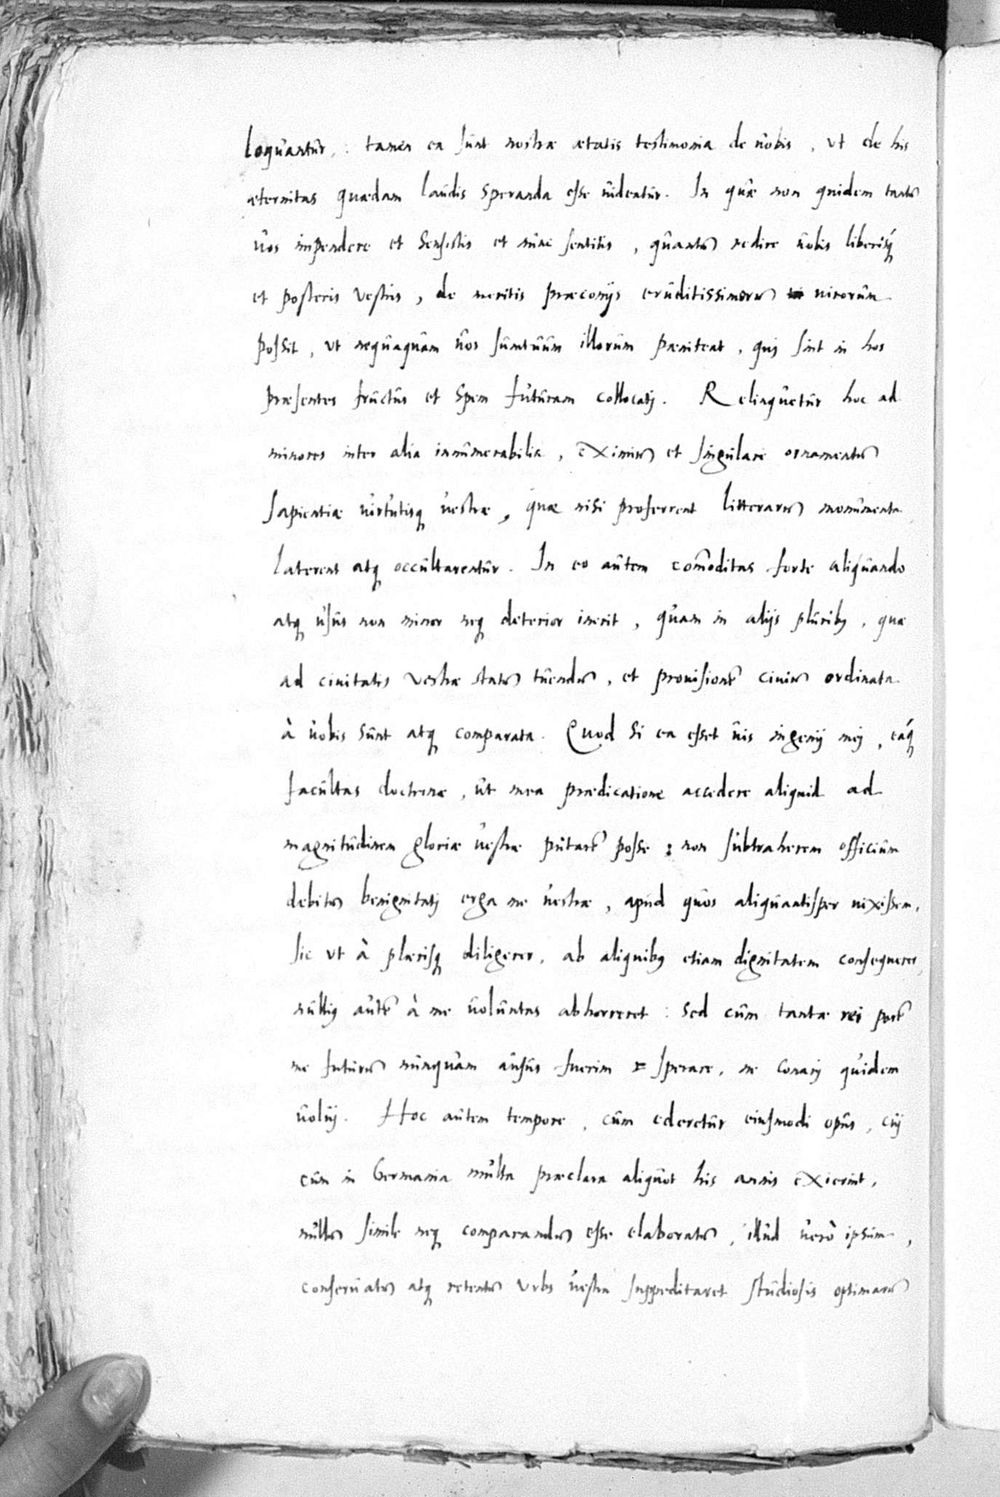 loquantur, : tamen ea sunt nostræ ætatis testimonia de uobis, ut de his
æternitas quædam laudis speranda esse uideatur. In quæ non quidem tantũ
uos inpendere et sensistis et nunc sentitis, quantũ redire uobis liberisq́
et posteris vestris, de meritis præconijs eruditissimorũ uirorum
possit, ut nequaquam uos sumtuum illorum pœniteat, qui sint in hos
præsentes fructus et spem futuram collocati. Relinquetur hoc ad
minores inter alia innumerabilia, eximiũ et singulare ornamentũ
sapientiæ uirtutisq uestræ, quæ nisi proferrent litterarũ monumenta
laterent atq occultarentur. In eo autem com̃oditas forte aliquando
atq usus non minor neq deterior inerit, quam in alijs pluribꝫ, quæ
ad ciuitatis vestræ statũ tuendũ, et prouisionẽ ciuiũ ordinata
à uobis sunt atq comparata. Quod si ea esset uis ingenij mei, eaq́
facultas doctrinæ, ut mea prædicatione accedere aliquid ad
magnitudinem gloriæ uestræ putarẽ posse : non subtraherem officium
debitũ benignitati erga me uestræ, apud quos aliquantisper uixissem,
sic ut à plærisq diligerer, ab aliquibꝫ etiam dignitatem consequerer,
nullius autẽ à me uoluntas abhorreret : sed cum tantæ rei partẽ
me futurũ nunquam ausus fuerim sperare, ne conari quidem
uolui. Hoc autem tempore, cum ederetur eiusmodi opus, cui
cum in Germania multa præclara aliquot his annis exierint,
nullũ simile neq comparandũ esse elaboratũ, illud uerò ipsum,
conseruatũ atq retentũ urbs uestra suppeditaret studiosis optimarũ